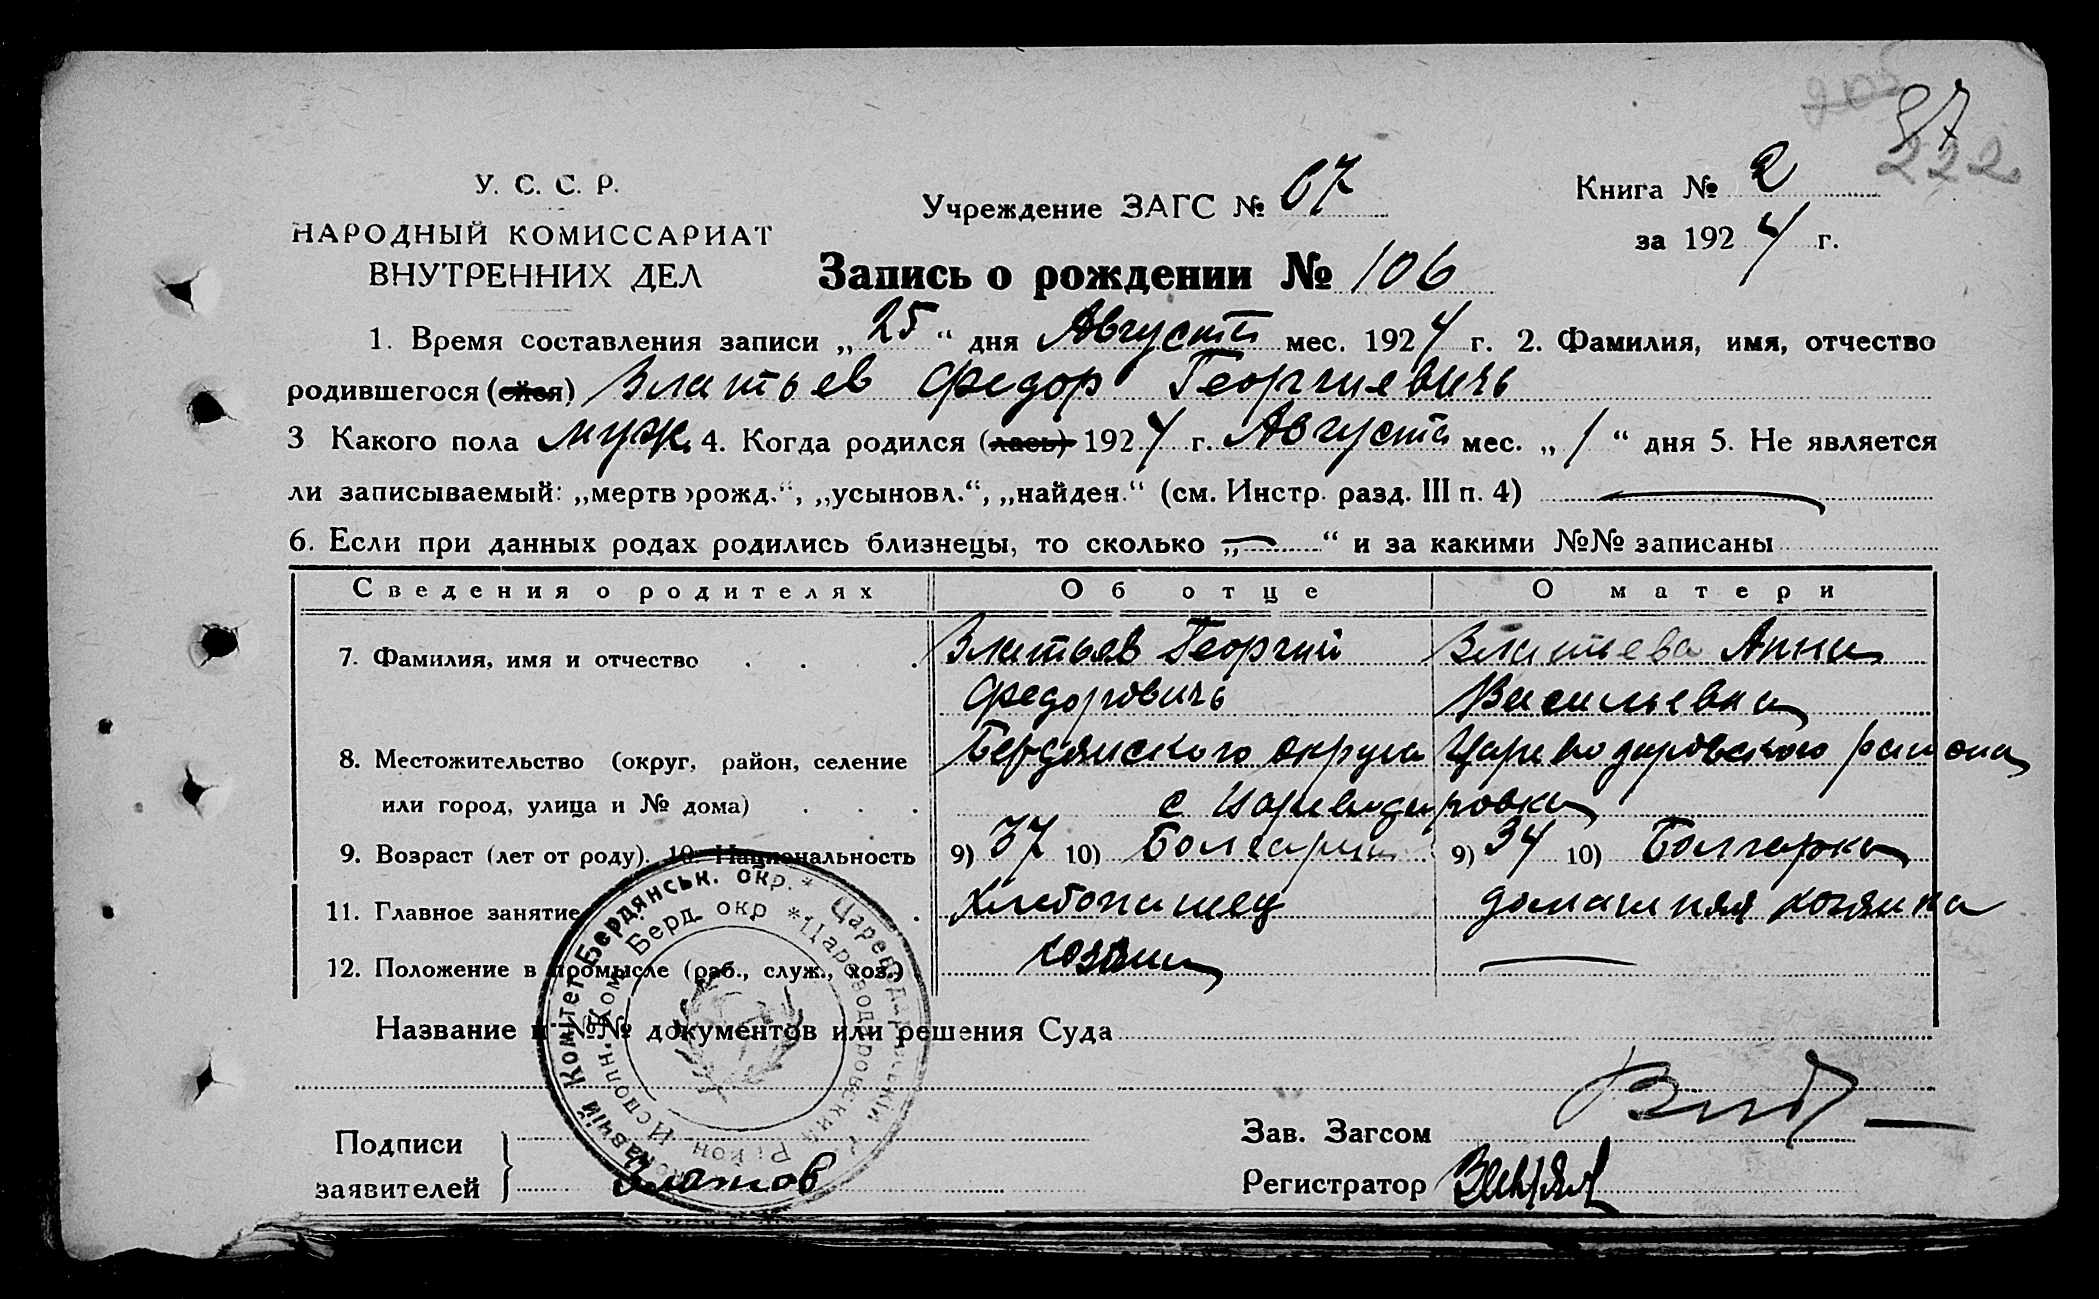 205
87
222
У. С. С. Р.
НАРОДНЫЙ КОМИССАРИАТ
ВНУТРЕННИХ ДЕЛ
Учреждение ЗАГС № 67
Книга № 2
за 1924 г.
Запись о рождении № 106
1. Время составления записи „25“ дня Августа мес. 1924 г. 2. Фамилия, имя, отчество
родившегося (ейся) Златьев Федор Георгиевичь
3 Какого пола муж. 4. Когда родился (лась) 1924 г. Августа мес. „1“ дня 5. Не является
ли записываемый: „мертворожд.“, „усыновл.“, „найден.“ (см. Инстр. разд. III п. 4)
6. Если при данных родах родились близнецы, то сколько „—“ и за какими №№ записаны
Сведения о родителях Об отце О матери
7. Фамилия, имя и отчество Златьев Георгий Златьева Анна
Федоровичь Васильевна
8. Местожительство (округ, район, селение Бердянского округа Цареводаровского района
или город, улица и № дома) с Цареводаровка
9. Возраст (лет от роду). 10. Национальность 9) 37 10) Болгарин 9) 34 10) Болгарка
11. Главное занятие Хлебопашец домашняя хозяйка
12. Положение в промысле (раб., служ., хоз.) хозяин —
Название и №№ документов или решения Суда
Подписи
заявителей Златов
Зав. Загсом
Регистратор
Комітет Бердянськ. окр. *
Исполн. Ком. Берд. окр * Цареводаровский Район